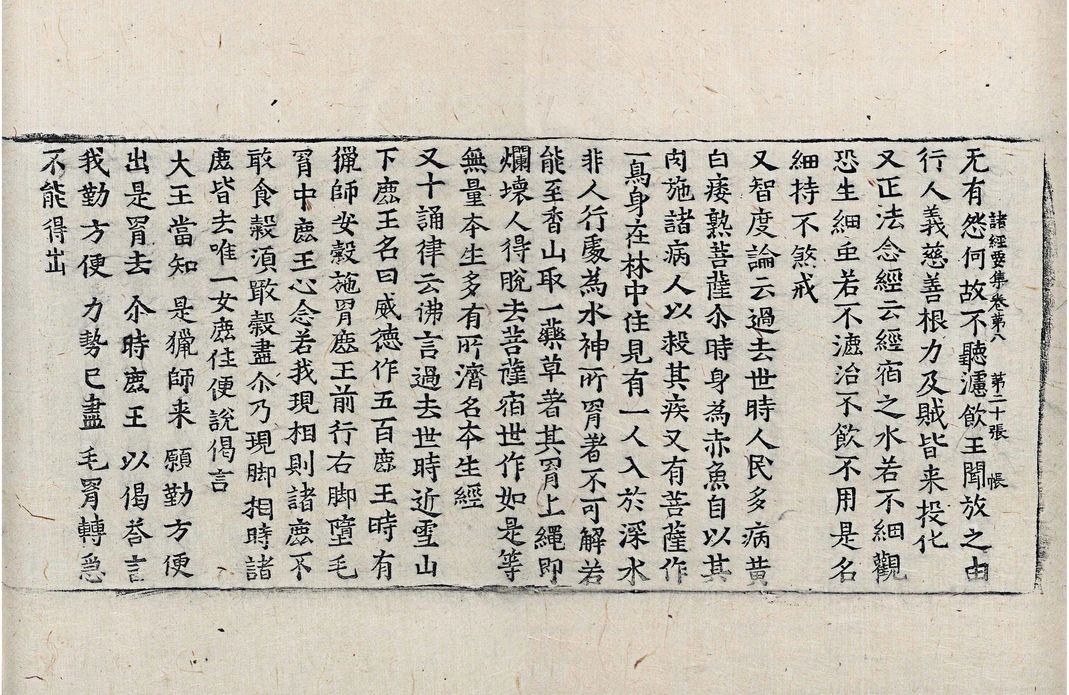 无有怨何故不聽濾飲王聞放之由
諸經要集卷第八 第二十張 帳
行人義慈善根力及賊皆来投化
又正法念經云經宿之水若不細觀
恐生細虫若不漉治不飲不用是名
細持不煞戒
又智度論云過去世時人民多病黄
白痿熟菩薩尒時身為赤魚自以其
肉施諸病人以救其疾又有菩薩作
一鳥身在林中住見有一人入於深水
非人行處為水神所罥著不可解若
能至香山取一藥草著其罥上繩即
爛壞人得脫去菩薩宿世作如是等
無量本生多有所濟名本生經
又十誦律云佛言過去世時近雪山
下鹿王名曰威德作五百鹿王時有
獵師安穀施罥鹿王前行右脚墮毛
罥中鹿王心念若我現相則諸鹿不
敢食穀湏噉穀盡尒乃現脚相時諸
鹿皆去唯一女鹿住便說偈言
大王當知 是獵師来 願勤方便
出是罥去 尒時鹿王 以偈荅言
我勤方便 力勢已盡 毛罥轉急
不能得出